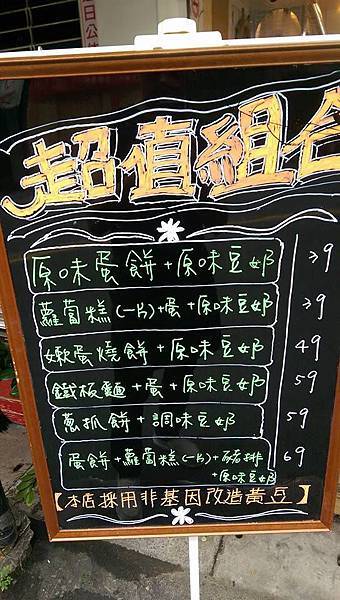 超值組合
原味蛋餅+原味豆奶 39
蘿蔔糕(一片)+蛋+原味豆奶 39
嫩蛋燒餅+原味豆奶 49
鐵板麵+蛋+原味豆奶 59
蔥抓餅+調味豆奶 59
蛋餅+蘿蔔糕(一片)+豬排 69
+原味豆奶
【本店採用非基因改造黃豆】